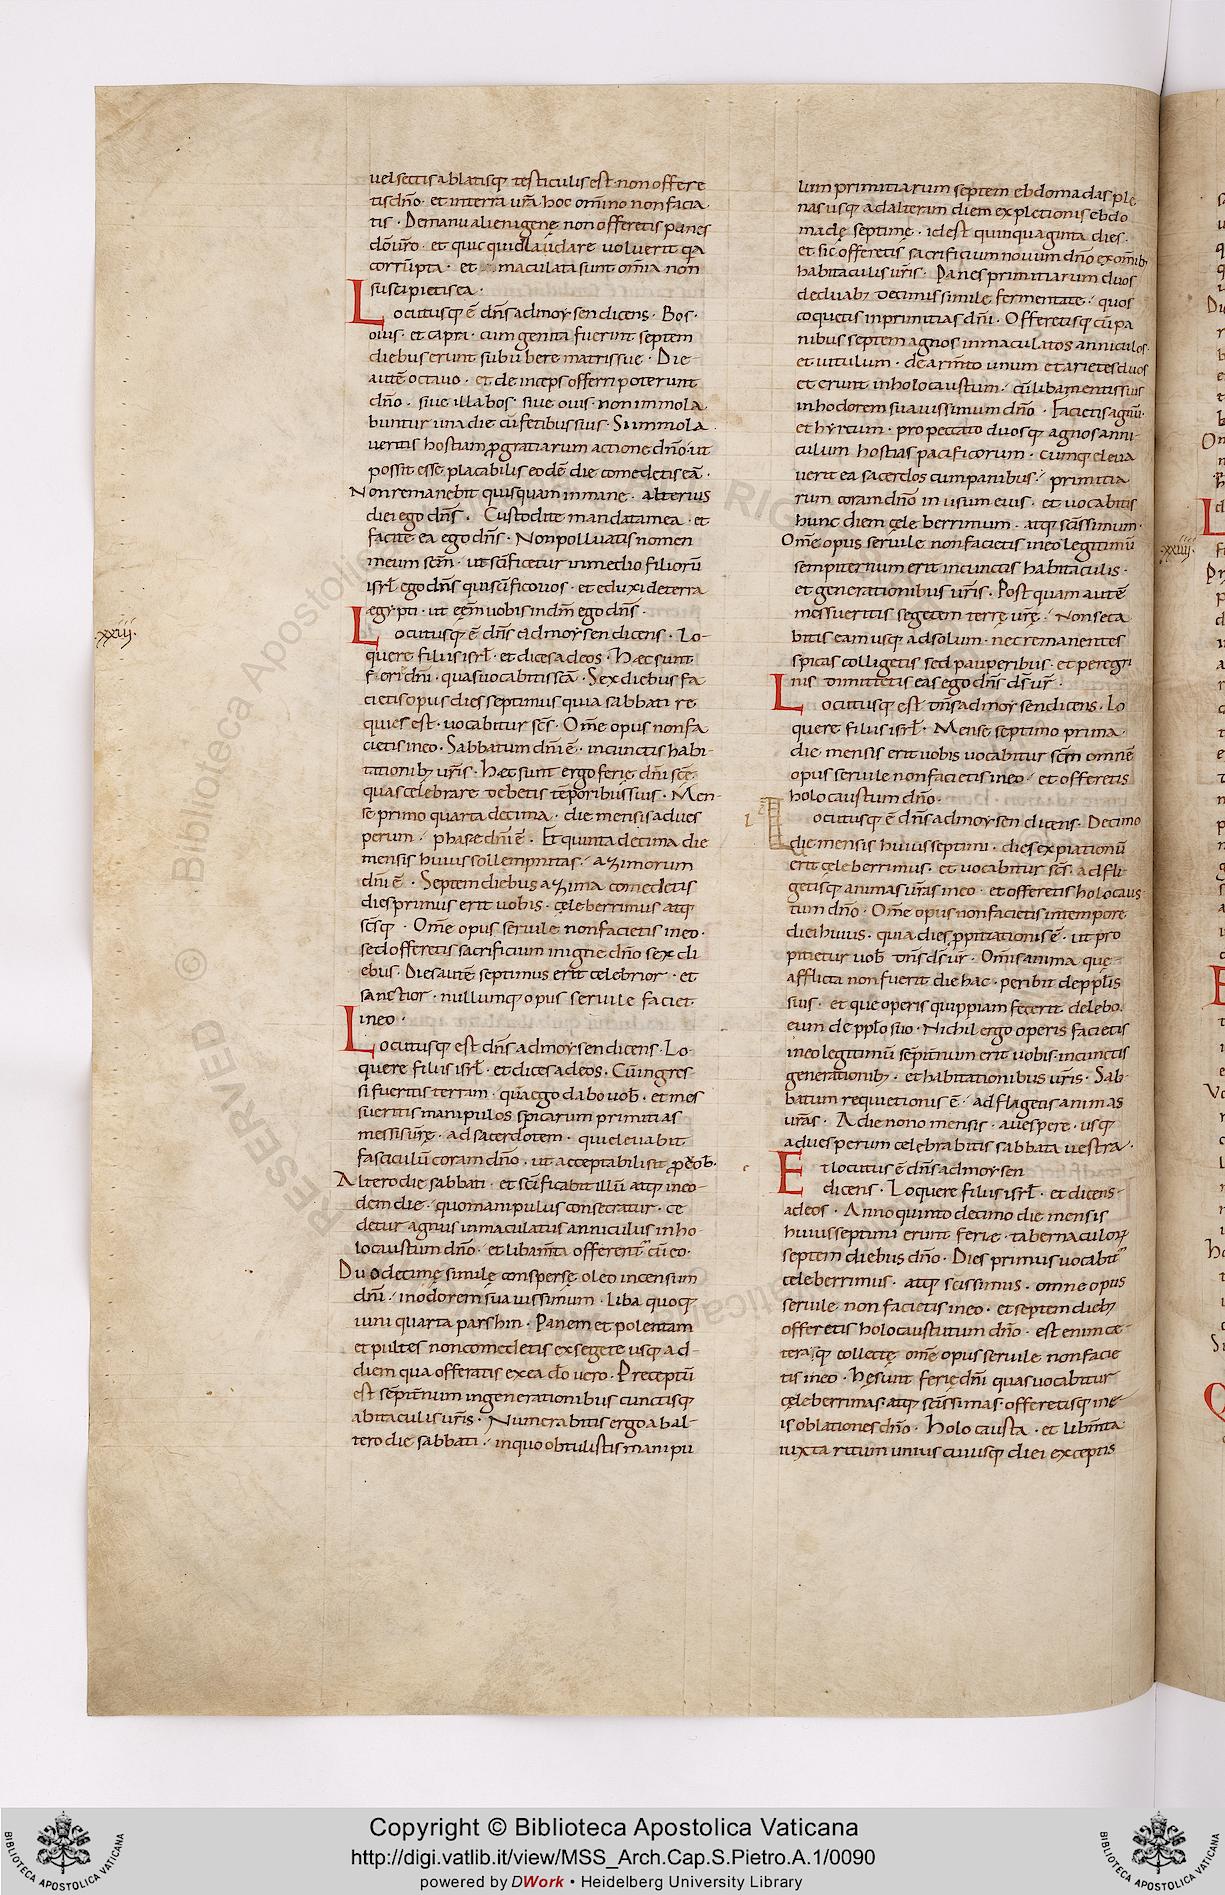 vel sectis ablatisq; testiculis est non offere
tis dño · et in terra urã hoc omino non facia
tis · De manu alienigenę non offeretis panes
dõ uro · et quicquid laudare voluerit qa
corrupta · et maculata sunt omia non
suscipietis ea ·
Locutusq; ẽ dñs ad moysen dicens · Bos ·
ouis · et capra · cum genita fuerint septem
diebus erunt sub ubere matris sue · Die
autẽ octauo · et deinceps offerri poterunt
dño · siue illa bos · siue ouis · non immola
buntur una die cũ fetibus suis · Si immola
ueritis hostiam p gratiarum actione dño · ut
possit esse placabilis eodẽ die comedetis eã ·
Non remanebit quisquam in mane · alterius
diei ego dñs · Custodite mandata mea · et
facite ea ego dñs · Non polluatis nomen
meum scm · ut scificetur in medio filioru
isrl ego dñs qui scifico uos · et eduxi de terra
ęgypti · ut eẽm uobis in dm ego dñs ·
·xxiii·
Locutusq; ẽ dñs ad moysen dicens · Lo-
quere filiis isrl · et dices ad eos · Hæc sunt
ferię dñi · quas uocabitis scã · Sex diebus fa
cietis opus dies septimus quia sabbati re
quies est · uocabitur scs · Ome opus non fa
cietis in eo · Sabbatum dñi ẽ · in cunctis habi-
tationib; uris · Hæ sunt ergo ferię dñi scę
quas celebrare debetis temporibus suis · Men-
se primo quarta decima · die mensis ad ues
perum · phase dñi ẽ · Et quinta decima die
mensis huius sollempnitas · azimorum
dñi ẽ · Septem diebus azima comedetis
dies primus erit uobis · celeberrimus atq;
scsq; · Ome opus seruile non facietis in eo ·
sed offeretis sacrificium in igne dño sex di
ebus · Dies autẽ septimus erit celebrior · et
sanctior · nullumq; opus seruile faciet
in eo ·
Locutusq; est dñs ad moysen dicens · Lo-
quere filiis isrl · et dices ad eos · Cũ ingres
si fueritis terram · quã ego dabo uob · et mes
sueritis manipulos spicarum primitias
messis urę · ad sacerdotem · qui eleuabit
fasciculũ coram dño · ut acceptabilis sit p uob ·
Altero die sabbati · et scificabit illũ atq; in eo
dem die · quo manipulus consecratur · ce
detur agnus inmaculatus anniculus in ho
locaustum dño · et libamta offerent cũ eo ·
Duo decimę similę conspersę oleo incensum
dñi · in odorem suauissimum · liba quoq;
uini quarta pars hin · Panem et polentam
et pultes non comedetis ex segete usq; ad
diem qua offeratis ex ea do uero · Preceptũ
est sempitnum in generationibus cunctisq;
abitaculis uris · Numerabitis ergo ab al-
tero die sabbati · in quo obtulistis manipu
lum primitiarum septem ebdomadas ple
nas usq; ad alteram diem expletionis ebdo
madę septimę · id est quinquaginta dies ·
et sic offeretis sacrificium nouum dño ex omib;
habitaculis uris · Panes primitiarum duos
de duab; decimis simile fermentate · quos
coquetis in primitias dñi · Offeretisq; cũ pa
nibus septem agnos inmaculatos anniculos ·
et uitulum · de armto unum et arietes duos
et erunt in holocaustum · cũ libamentis suis
in hodorem suauissimum dño · Facietis agnũ ·
et hyrcum · pro peccato duosq; agnos anni-
culum hostias pacificorum · Cumq; eleua
uerit ea sacerdos cum panibus · primitia
rum coram dño in usum eius · et uocabitis
hunc diem celeberrimum · atq; scissimum ·
Ome opus seruile non facietis in eo legitimũ
sempiternum erit in cunctis habitaculis ·
et generationibus uris · Postquam autẽ
messueritis segetem terrę urę · Non seca
bitis eam usq; ad solum · nec remanentes
spicas colligetis sed pauperibus · et peregri
nis dimittetis eas ego dñs ds ur ·
Locutusq; est dñs ad moysen dicens · Lo
quere filiis isrl · Mense septimo prima ·
die mensis erit uobis uocabitur scm omnẽ
opus seruile non facietis in eo · et offeretis
holocaustum dño ·
Locutusq; ẽ dñs ad moysen dicens · Decimo
die mensis huius septimi · dies expiationũ
erit celeberrimus · et uocabitur scs · adfli
getisq; animas uras in eo · et offeretis holocaus
tum dño · Ome opus non facietis in tempore
diei huius · quia dies ppitiationis ẽ · ut pro
pitietur uob dns ds ur · Omis anima que
afflicta non fuerit die hac · peribit de pplis
suis · et que operis quippiam fecerit delebo
eum de pplo suo · Nichil ergo operis facietis
in eo legitimũ sempitnum erit uobis · in cunctis
generationib; · et habitationibus uris · Sab-
batum requietionis ẽ · adflagetis animas
uras · A die nono mensis · a uespere · usq;
ad uesperum celebrabitis sabbata uestra ·
Et locutus ẽ dñs ad moysen
dicens · Loquere filiis isrl · et dicens
ad eos · Anno quinto decimo die mensis
huius septimi erunt ferie · tabernaculorum
septem diebus dño · Dies primus uocabit
celeberrimus · atq; scissimus · omne opus
seruile non facietis in eo · et septem dieb;
offeretis holocaustutum dño · est enim ce
terasq; collectę ome opus seruile non facie
tis in eo · Hę sunt ferię dñi quas uocabitur
celeberrimas atq; scissimas · offeretisq; in e
is oblationes dño · Holocausta · et libmta
iuxta ritum unius cuiusq; diei exceptis
·xxiiii·
Copyright © Biblioteca Apostolica Vaticana
http://digi.vatlib.it/view/MSS_Arch.Cap.S.Pietro.A.1/0090
powered by DWork • Heidelberg University Library